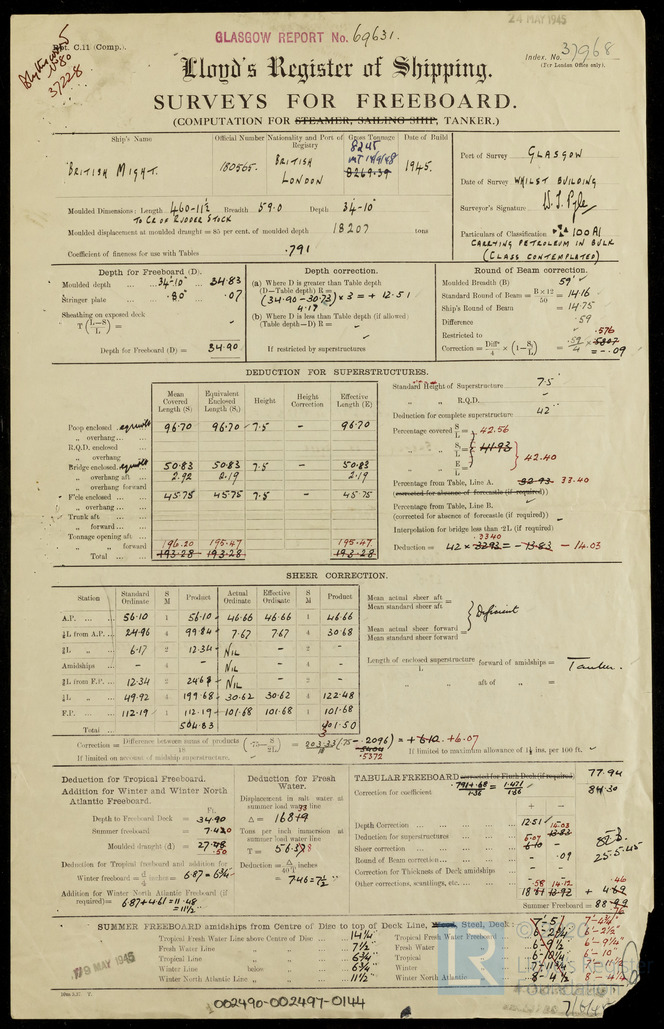 24 MAY 1945
Rpt. C.11 (Comp.).
GLASGOW REPORT No. 69631.
Index. No. 37968
(For London Office only).
37228
Lloyd's Register of Shipping.
SURVEYS FOR FREEBOARD.
(COMPUTATION FOR STEAMER, SAILING SHIP, TANKER.)
Ship's Name
Official Number
Nationality and Port of Registry
Gross Tonnage
Date of Build
BRITISH MIGHT.
180565.
BRITISH
LONDON
8245
8269.39
1945.
Port of Survey GLASGOW
Date of Survey WHILST BUILDING
Surveyor's Signature
Particulars of Classification 100A1
CARRYING PETROLEUM IN BULK
(CLASS CONTEMPLATED)
Moulded Dimensions: Length 460-11½ Breadth 59.0 Depth 34-10"
TO CR OF RUDDER STOCK
Moulded displacement at moulded draught = 85 per cent. of moulded depth 18207 tons
Coefficient of fineness for use with Tables .791
Depth for Freeboard (D).
Moulded depth ... ... 34-10" ... 34.83
Stringer plate ... .80" ... .07
Sheathing on exposed deck
T (L-S/L) = -
Depth for Freeboard (D) = 34.90
Depth correction.
(a) Where D is greater than Table depth
(D-Table depth) R =
(34.90-30.73) × 3 = + 12.51
4.17
(b) Where D is less than Table depth (if allowed)
(Table depth-D) R = -
If restricted by superstructures -
Round of Beam correction.
Moulded Breadth (B) 59'
Standard Round of Beam = B×12/50 = 14.16
Ship's Round of Beam = 14.75
Difference .59
Restricted to
Correction = Diffce/4 × (1-S₁/L) = .59/4 × .5807 .576
= -.09
DEDUCTION FOR SUPERSTRUCTURES.
Mean Covered Length (S)
Equivalent Enclosed Length (S₁)
Height
Height Correction
Effective Length (E)
Poop enclosed 96.70 96.70 7.5 - 96.70
„ overhang ... ...
R.Q.D. enclosed ...
„ overhang
Bridge enclosed 50.83 50.83 7.5 - 50.83
„ overhang aft ... 2.92 2.19 2.19
„ overhang forward
F'cle enclosed ... ... 45.75 45.75 7.5 - 45.75
„ overhang ... ...
Trunk aft ... ...
„ forward ... ...
Tonnage opening aft ...
„ „ forward 196.20 195.47 195.47
Total ... ... 193.28 193.28 193.28
Standard Height of Superstructure 7.5
„ „ R.Q.D. -
Deduction for complete superstructure 42"
Percentage covered S/L = 42.56
„ „ S₁/L = 41.93
42.40
„ „ E/L =
Percentage from Table, Line A. 32.93 33.40
(corrected for absence of forecastle (if required))
Percentage from Table, Line B. -
(corrected for absence of forecastle (if required))
Interpolation for bridge less than ·2L (if required)
Deduction = 42 × 32.93 33.40 = - 13.83 - 14.03
SHEER CORRECTION.
Station
Standard Ordinate
S M
Product
Actual Ordinate
Effective Ordinate
S M
Product
A.P. ... ... 56.10 1 56.10 46.66 46.66 1 46.66
⅙L from A.P. ... 24.96 4 99.84 7.67 7.67 4 30.68
⅓L „ ... 6.17 2 12.34 NIL - 2 -
Amidships ... - 4 - NIL - 4 -
⅓L from F.P. ... 12.34 2 24.68 NIL - 2 -
⅙L „ ... 49.92 4 199.68 30.62 30.62 4 122.48
F.P. ... ... 112.19 1 112.19 101.68 101.68 1 101.68
Total ... 504.83 301.50
Mean actual sheer aft
Mean standard sheer aft =
Mean actual sheer forward
Mean standard sheer forward =
Deficient
Length of enclosed superstructure/L forward of amidships = Tanker.
„ „ aft of „ =
Correction = Difference between sums of products/18 (·75 - S/2L) = 203.33/18 (.75 - .2096) = + 6.10 +6.07
.5404
.5372
If limited on account of midship superstructure.
If limited to maximum allowance of 1½ ins. per 100 ft.
Deduction for Tropical Freeboard.
Addition for Winter and Winter North Atlantic Freeboard.
Ft.
Depth to Freeboard Deck = 34.90
Summer freeboard = 7.420
Moulded draught (d) = 27.48
.50
Deduction for Tropical freeboard and addition for
Winter freeboard = d/4 inches = 6.87 = 6¾"
Addition for Winter North Atlantic Freeboard (if required) = 6.87 + 4.61 = 11.48
= 11½"
Deduction for Fresh Water.
Displacement in salt water at summer load water line
Δ = 16849
Tons per inch immersion at summer load water line
T = 56.3
Deduction = Δ/40T inches
= 7.46 = 7½"
TABULAR FREEBOARD corrected for Flush Deck (if required) 77.94
Correction for coefficient .791+.68/1.36 = 1.471/1.36 84.30
+ -
Depth Correction ... ... 12.51 14.03
Deduction for superstructures ... - 13.83
Sheer correction ... ... 6.07 6.10 -
Round of Beam correction... ... - .09
Correction for Thickness of Deck amidships -
Other corrections, scantlings, etc. ... - -
.58 14.12 .46
18.61 13.92 + 4.69
Summer Freeboard = 88.99
25.5.45
SUMMER FREEBOARD amidships from Centre of Disc to top of Deck Line, Wood, Steel, Deck:
Tropical Fresh Water Line above Centre of Disc ... 14¼"
Fresh Water Line „ „ 7½"
Tropical Line „ „ 6¾"
Winter Line below „ 6¾"
Winter North Atlantic Line „ „ 11½"
7-5
Tropical Fresh Water Freeboard 6-2¾" 6-2½"
Fresh Water „ 6-9½" 6-9¼"
Tropical „ 6-10¼ 6-10"
Winter „ 7-11¾
Winter North Atlantic „ 8-4½
19 MAY 1945
002490-002497-0144
LR